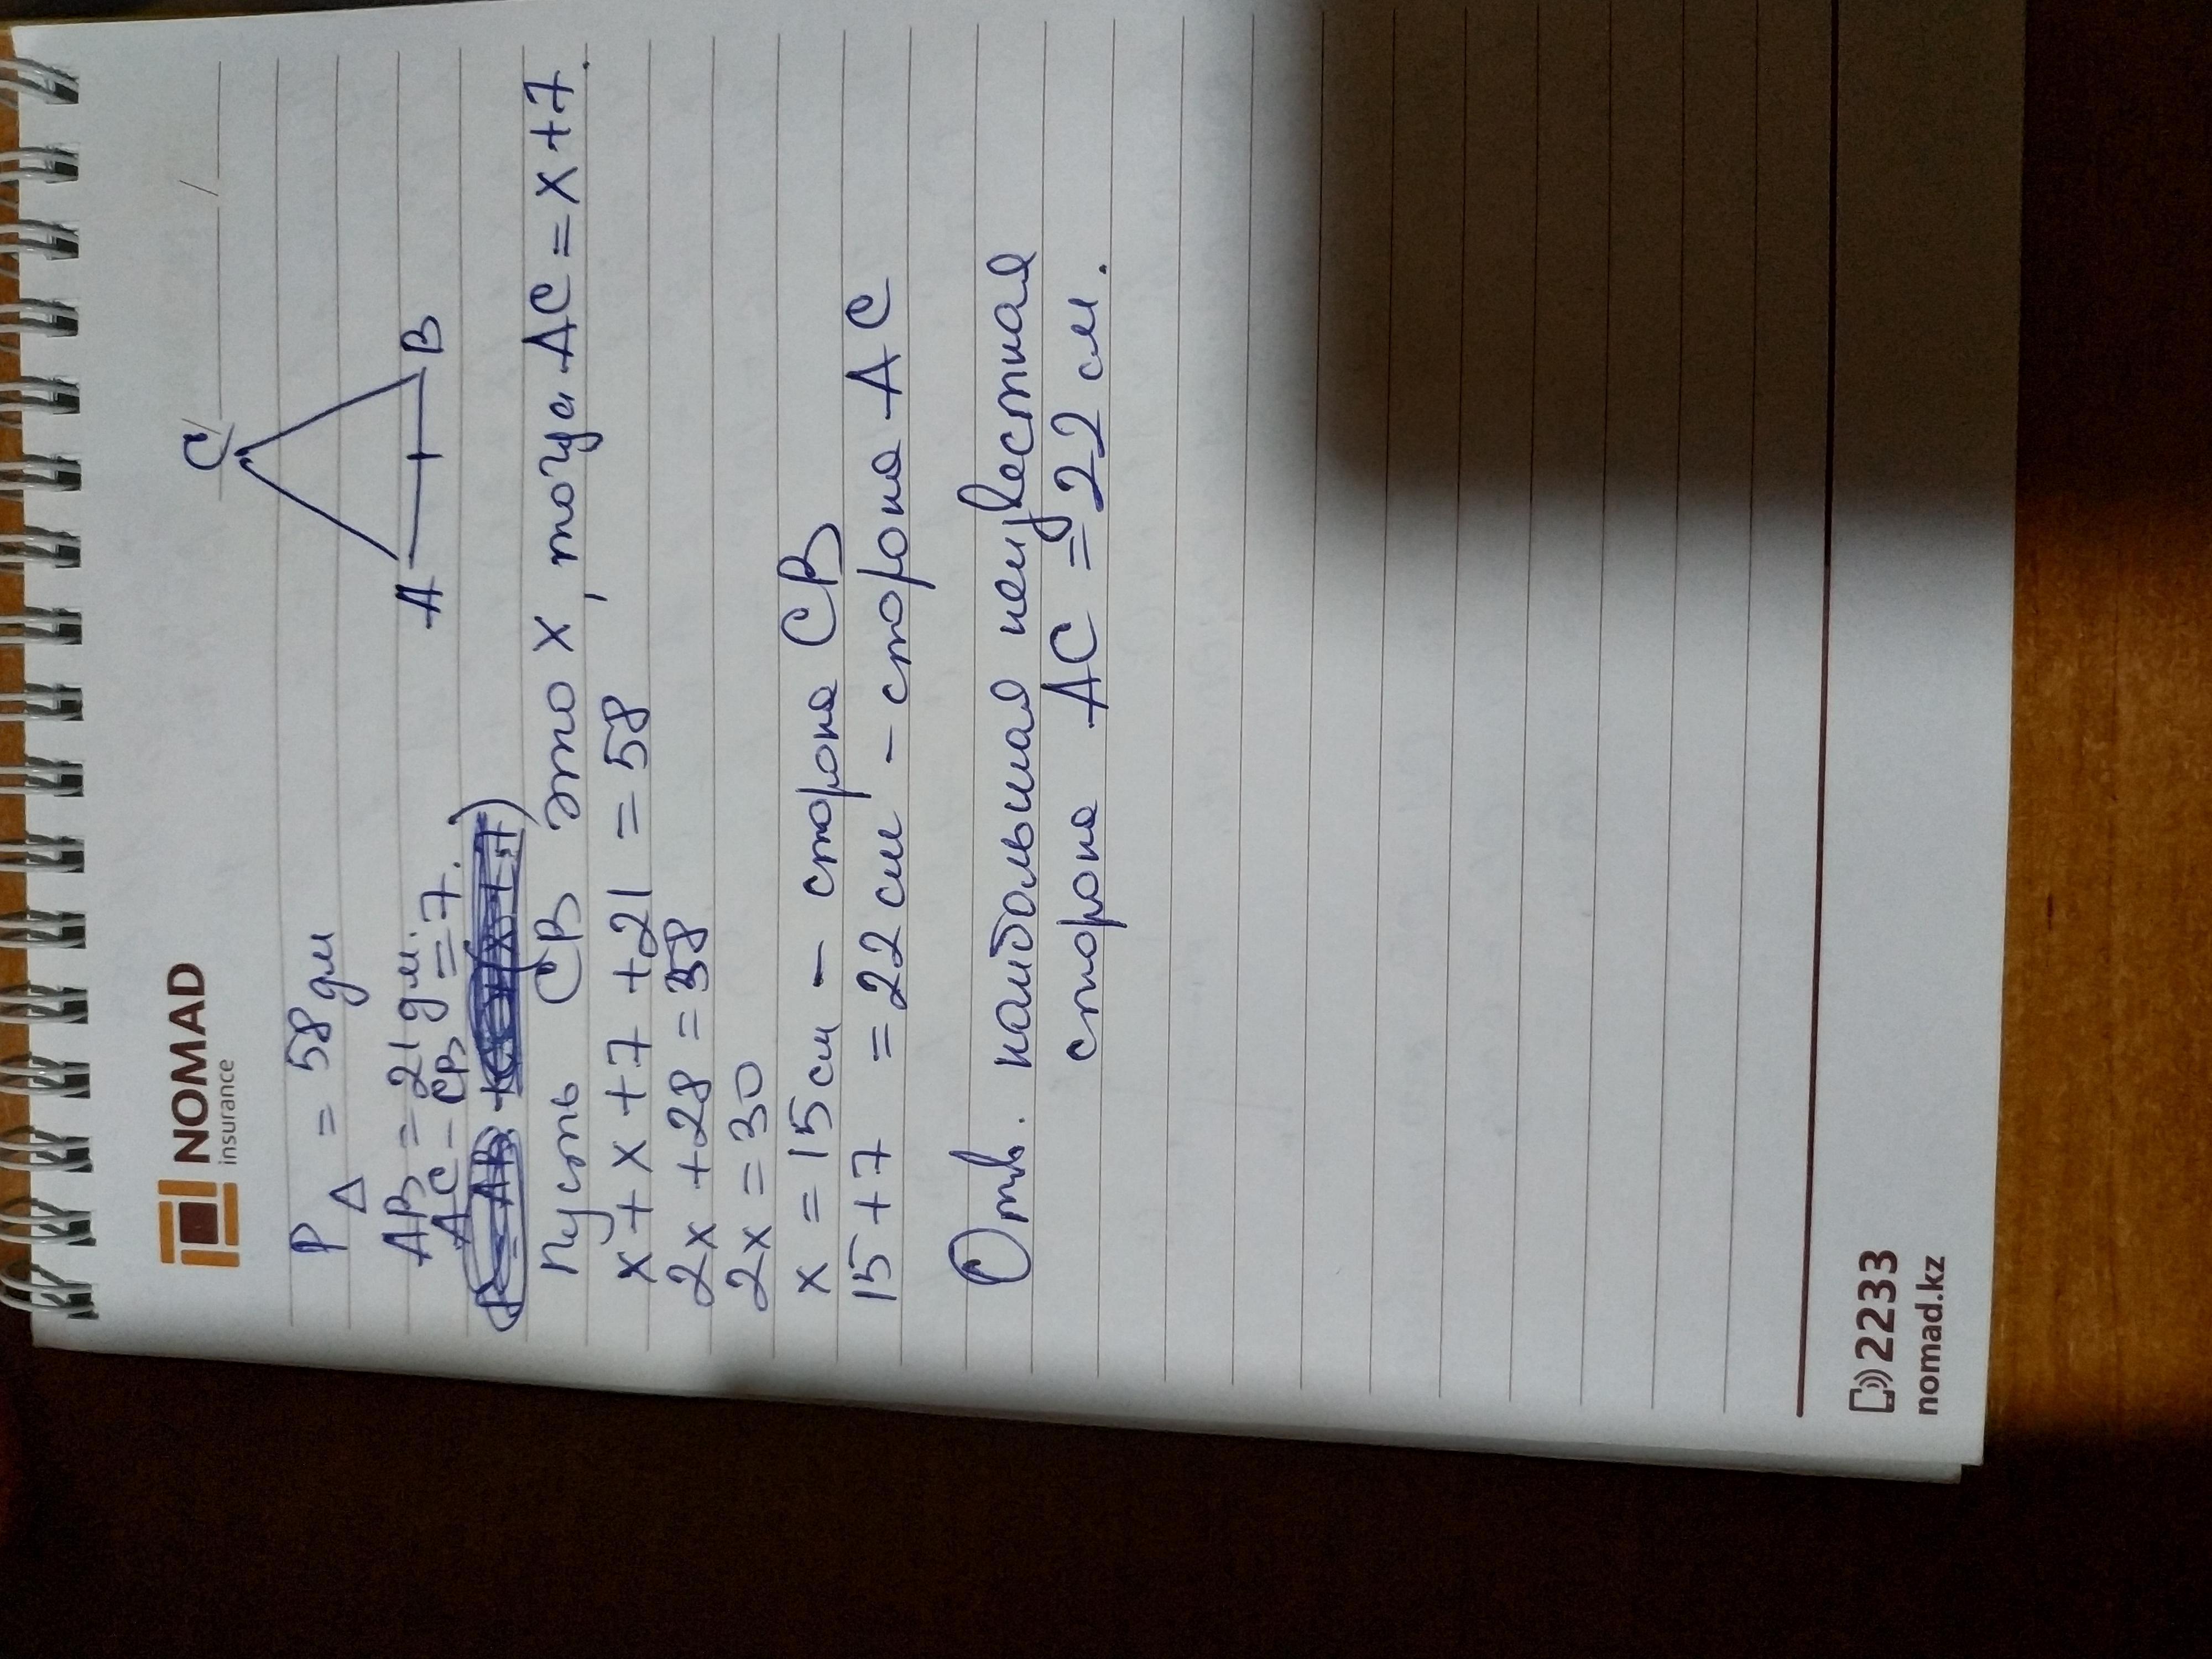 NOMAD
insurance
P△ = 58 дм
C
AB = 21 дм.
A B
AC - CB = 7.
Пусть CB это x, тогда AC = x + 7.
x + x + 7 + 21 = 58
2x + 28 = 58
2x = 30
x = 15 см - сторона CB
15 + 7 = 22 см - сторона AC
Отв. наибольшая неизвестная
сторона AC = 22 см.
2233
nomad.kz